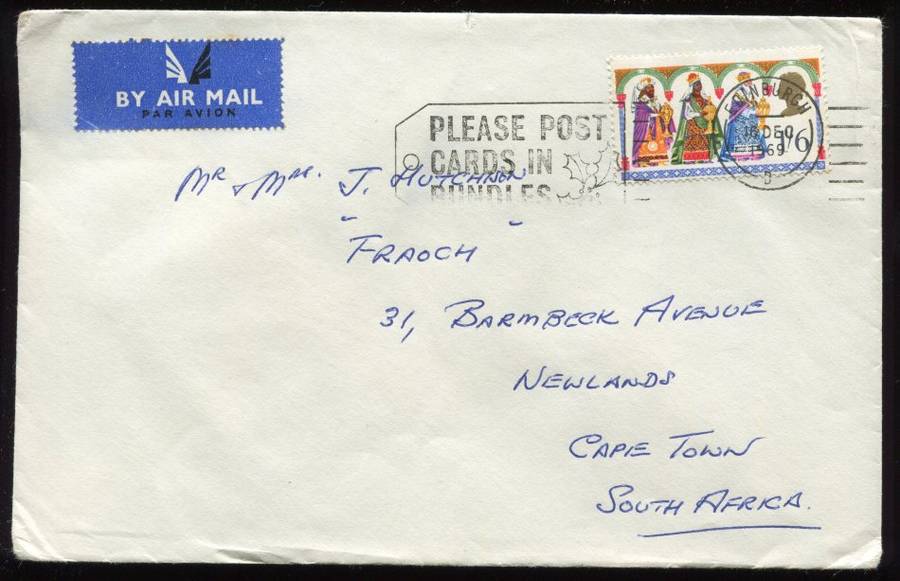 BY AIR MAIL
PAR AVION
PLEASE POST
CARDS IN
BUNDLES
EDINBURGH
16 DEC
1969
1/6
Mr & Mrs. J. Hutchison
Fraoch
31, Barmbeck Avenue
Newlands
Cape Town
South Africa.